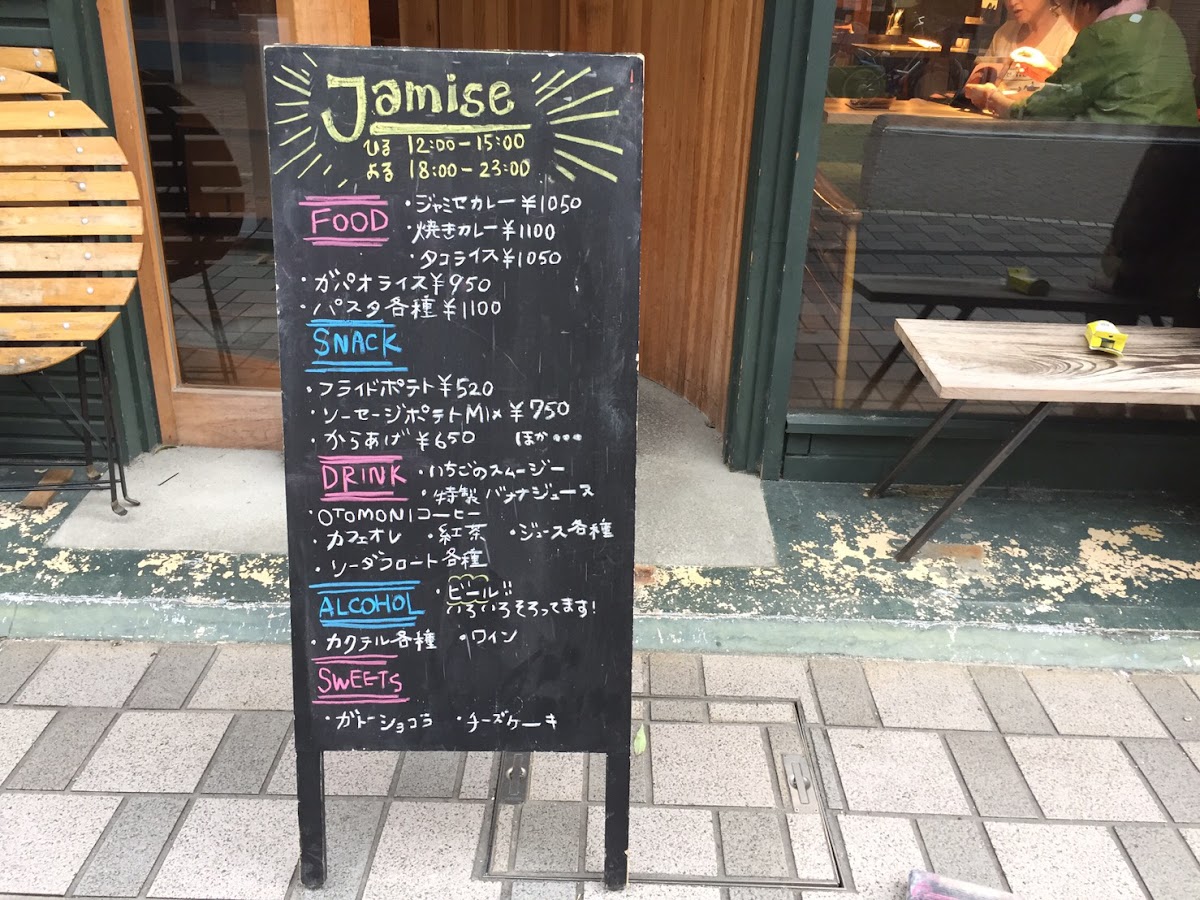 Jamise
ひる 12:00-15:00
よる 18:00-23:00
FOOD
・ジャミセカレー ¥1050
・焼きカレー ¥1100
・タコライス ¥1050
・ガパオライス ¥950
・パスタ各種 ¥1100
SNACK
・フライドポテト ¥520
・ソーセージポテトMix ¥750
・からあげ ¥650 ほか・・・
DRINK
・いちごのスムージー
・特製バナナジュース
・OTOMONIコーヒー
・カフェオレ ・紅茶 ・ジュース各種
・ソーダフロート各種
ALCOHOL
・ビール!!
いろいろそろってます!
・カクテル各種 ・ワイン
SWEETS
・ガトーショコラ ・チーズケーキ